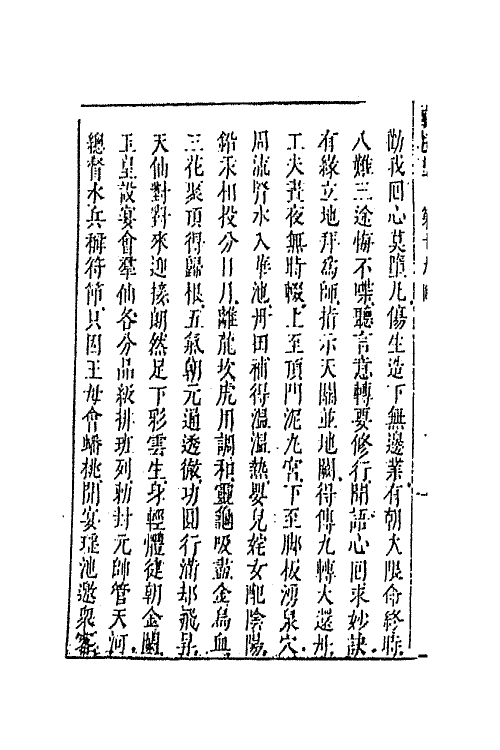 勸我回心莫墮凡傷生造下無邊業有朝大限命終時
八難三途悔不喋聽言意轉要修行聞語心回求妙訣
有緣立地拜為師指示天關並地闕得傳九轉大還丹
工夫晝夜無時輟上至頂門泥九宮下至脚板湧泉穴
周流腎水入華池丹田補得溫溫熱嬰兒姹女配陰陽
鉛汞相投分日月離龍坎虎用調和靈龜吸盡金烏血
三花聚頂得歸根五氣朝元通透徹功圓行滿却飛昇
天仙對對來迎接朗然足下彩雲生身輕體健朝金闕
玉皇設宴會羣仙各分品級排班列勅封元帥管天河
總督水兵稱符節只因王母會蟠桃開宴瑤池邀衆客